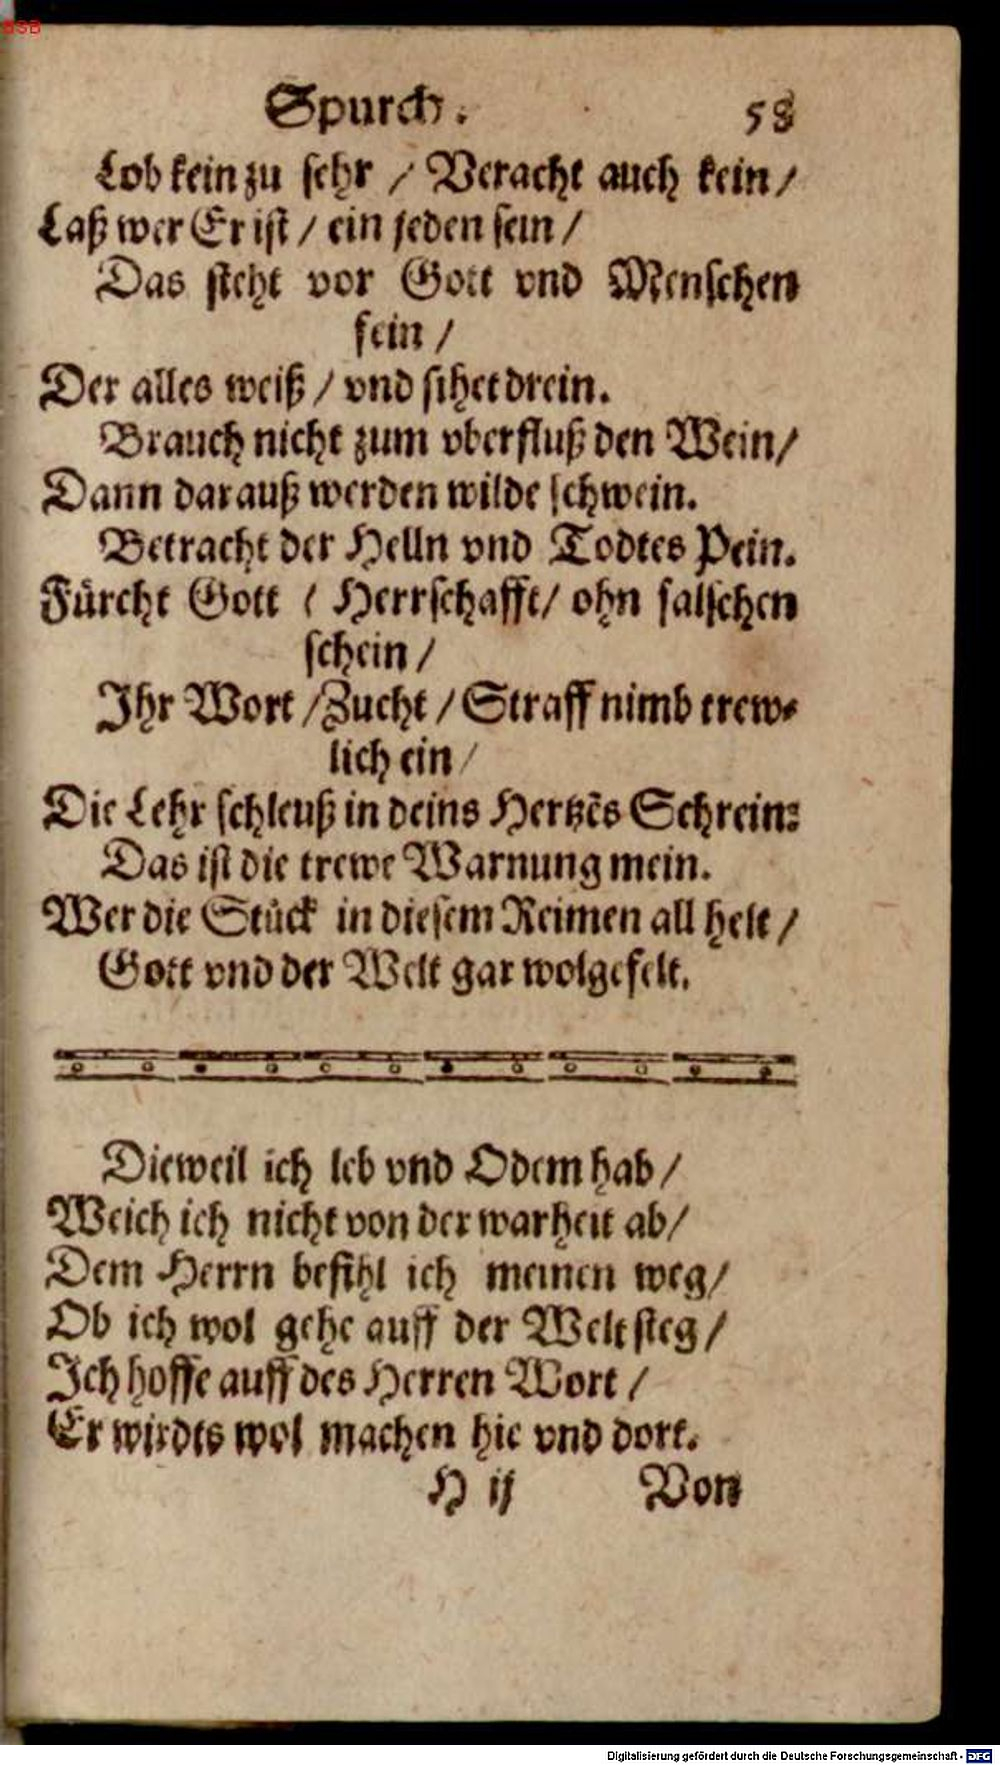 BSB
Spurch. 58
Lob kein zu sehr / Veracht auch kein /
Laß wer Er ist / ein jeden sein /
Das steht vor Gott vnd Menschen
fein /
Der alles weiß / vnd sihet drein.
Brauch nicht zum vberfluß den Wein /
Dann darauß werden wilde schwein.
Betracht der Helln vnd Todtes Pein.
Fürcht Gott / Herrschafft / ohn falschen
schein /
Ihr Wort / Zucht / Straff nimb trew-
lich ein /
Die Lehr schleuß in deins Hertzēs Schrein:
Das ist die trewe Warnung mein.
Wer die Stück in diesem Reimen all helt /
Gott vnd der Welt gar wolgefelt.
Dieweil ich leb vnd Odem hab /
Weich ich nicht von der warheit ab /
Dem Herrn befihl ich meinen weg /
Ob ich wol gehe auff der Welt steg /
Ich hoffe auff des Herren Wort /
Er wirdts wol machen hie vnd dort.
H ij Von
Digitalisierung gefördert durch die Deutsche Forschungsgemeinschaft - DFG